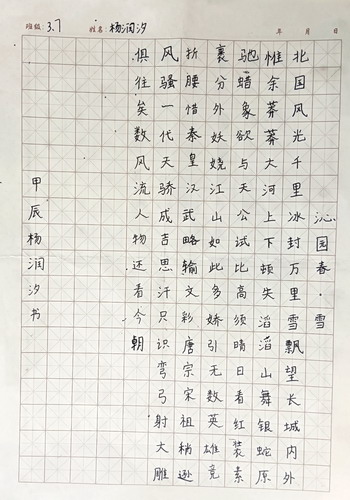 班级: 3.7 姓名: 杨润汐 年 月 日
沁园春·雪
北国风光千里冰封万里雪飘望长城内外
惟余莽莽大河上下顿失滔滔山舞银蛇原
驰蜡象欲与天公试比高须晴日看红装素
裹分外妖娆江山如此多娇引无数英雄竞
折腰惜秦皇汉武略输文彩唐宗宋祖稍逊
风骚一代天骄成吉思汗只识弯弓射大雕
俱往矣数风流人物还看今朝
甲辰杨润汐书